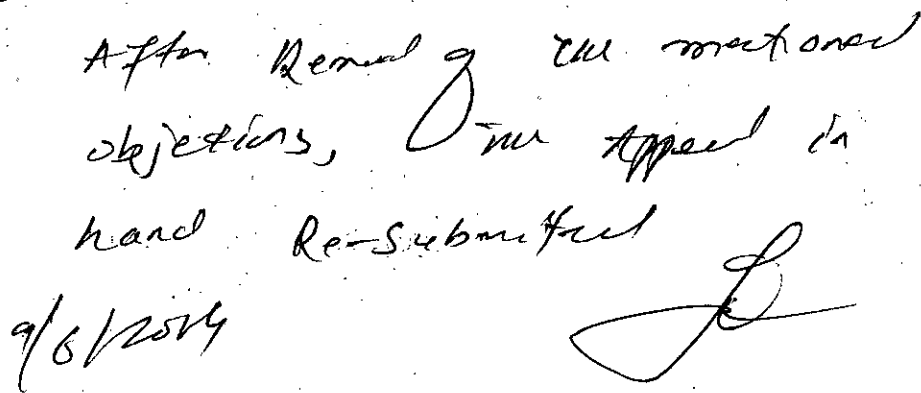 After Removal of the mentioned
objections, the Appeal in
hand Re-Submitted
9/6/2014